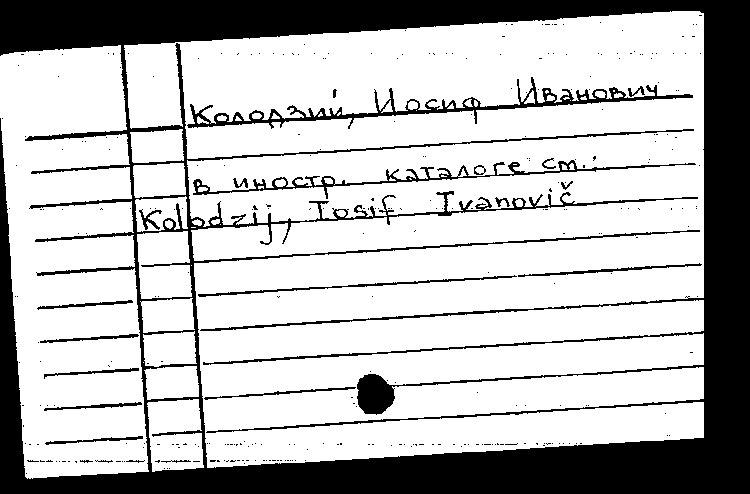 Колодзий, Иосиф Иванович
в иностр. каталоге см.:
Kolodzij, Iosif Ivanovič